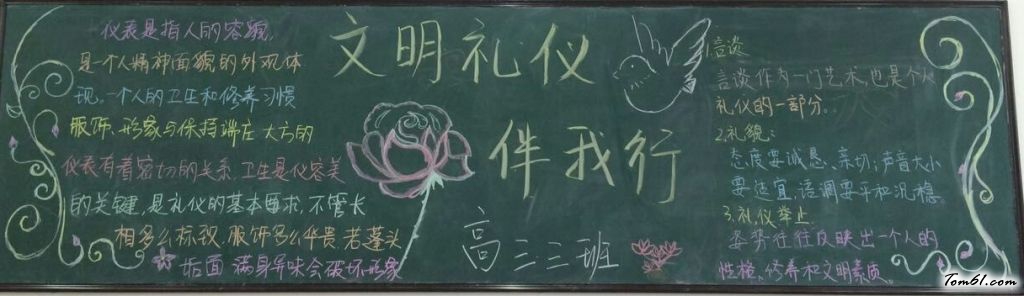 文明礼仪
伴我行
高三三班
仪表是指人的容貌,
是个人精神面貌的外观体
现。一个人的卫生和修养习惯
服饰、形象与保持端庄大方的
仪表有着密切的关系 卫生是仪容美
的关键,是礼仪的基本要求,不管长
相多么标致,服饰多么华贵,若蓬头
垢面 满身异味会破坏形象
1.言谈
言谈作为一门艺术,也是个人
礼仪的一部分。
2.礼貌:
态度要诚恳、亲切;声音大小
要适宜,语调要平和沉稳
3.礼仪举止
姿势往往反映出一个人的
性格、修养和文明素质。
Tom61.com